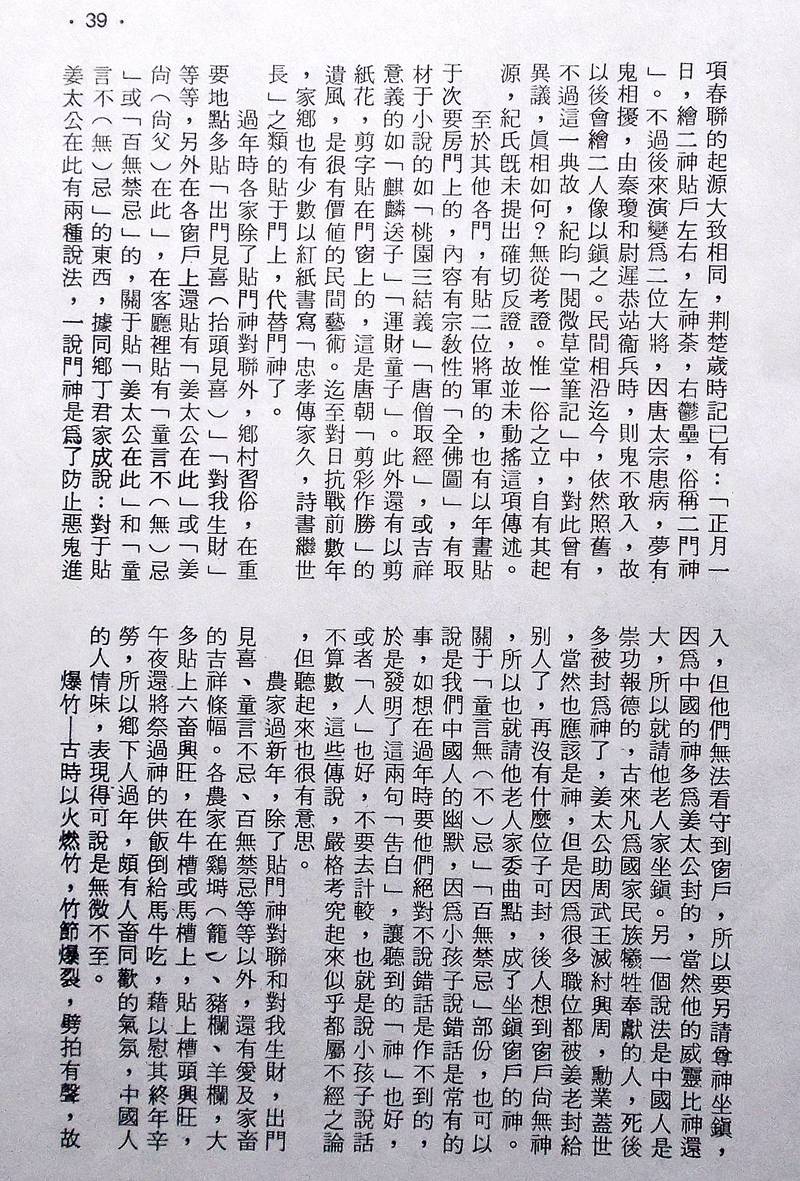 ·39·
項春聯的起源大致相同，荆楚歲時記已有：「正月一
日，繪二神貼戶左右，左神荼，右鬱壘，俗稱二門神
」。不過後來演變爲二位大將，因唐太宗患病，夢有
鬼相擾，由秦瓊和尉遲恭站衞兵時，則鬼不敢入，故
以後會繪二人像以鎭之。民間相沿迄今，依然照舊，
不過這一典故，紀昀「閱微草堂筆記」中，對此曾有
異議，眞相如何？無從考證。惟一俗之立，自有其起
源，紀氏旣未提出確切反證，故並未動搖這項傳述。
至於其他各門，有貼二位將軍的，也有以年畫貼
于次要房門上的，內容有宗敎性的「全佛圖」，有取
材于小說的如「桃園三結義」「唐僧取經」，或吉祥
意義的如「麒麟送子」「運財童子」。此外還有以剪
紙花，剪字貼在門窗上的，這是唐朝「剪彩作勝」的
遺風，是很有價値的民間藝術。迄至對日抗戰前數年
，家鄉也有少數以紅紙書寫「忠孝傳家久，詩書繼世
長」之類的貼于門上，代替門神了。
過年時各家除了貼門神對聯外，鄉村習俗，在重
要地點多貼「出門見喜（抬頭見喜）」「對我生財」
等等，另外在各窗戶上還貼有「姜太公在此」或「姜
尙（尙父）在此」，在客廳裡貼有「童言不（無）忌
」或「百無禁忌」的，關于貼「姜太公在此」和「童
言不（無）忌」的東西，據同鄉丁君家成說：對于貼
姜太公在此有兩種說法，一說門神是爲了防止惡鬼進
入，但他們無法看守到窗戶，所以要另請尊神坐鎭，
因爲中國的神多爲姜太公封的，當然他的威靈比神還
大，所以就請他老人家坐鎭。另一個說法是中國人是
崇功報德的，古來凡爲國家民族犧牲奉獻的人，死後
多被封爲神了，姜太公助周武王滅紂興周，勳業蓋世
，當然也應該是神，但是因爲很多職位都被姜老封給
別人了，再沒有什麼位子可封，後人想到窗戶尙無神
，所以也就請他老人家委曲點，成了坐鎭窗戶的神。
關于「童言無（不）忌」「百無禁忌」部份，也可以
說是我們中國人的幽默，因爲小孩子說錯話是常有的
事，如想在過年時要他們絕對不說錯話是作不到的，
於是發明了這兩句「吿白」，讓聽到的「神」也好，
或者「人」也好，不要去計較，也就是說小孩子說話
不算數，這些傳說，嚴格考究起來似乎都屬不經之論
，但聽起來也很有意思。
農家過新年，除了貼門神對聯和對我生財，出門
見喜、童言不忌、百無禁忌等等以外，還有愛及家畜
的吉祥條幅。各農家在鷄塒（籠）、豬欄、羊欄，大
多貼上六畜興旺，在牛槽或馬槽上，貼上槽頭興旺，
午夜還將祭過神的供飯倒給馬牛吃，藉以慰其終年辛
勞，所以鄉下人過年，頗有人畜同歡的氣氛，中國人
的人情味，表現得可說是無微不至。
爆竹—古時以火燃竹，竹節爆裂，劈拍有聲，故